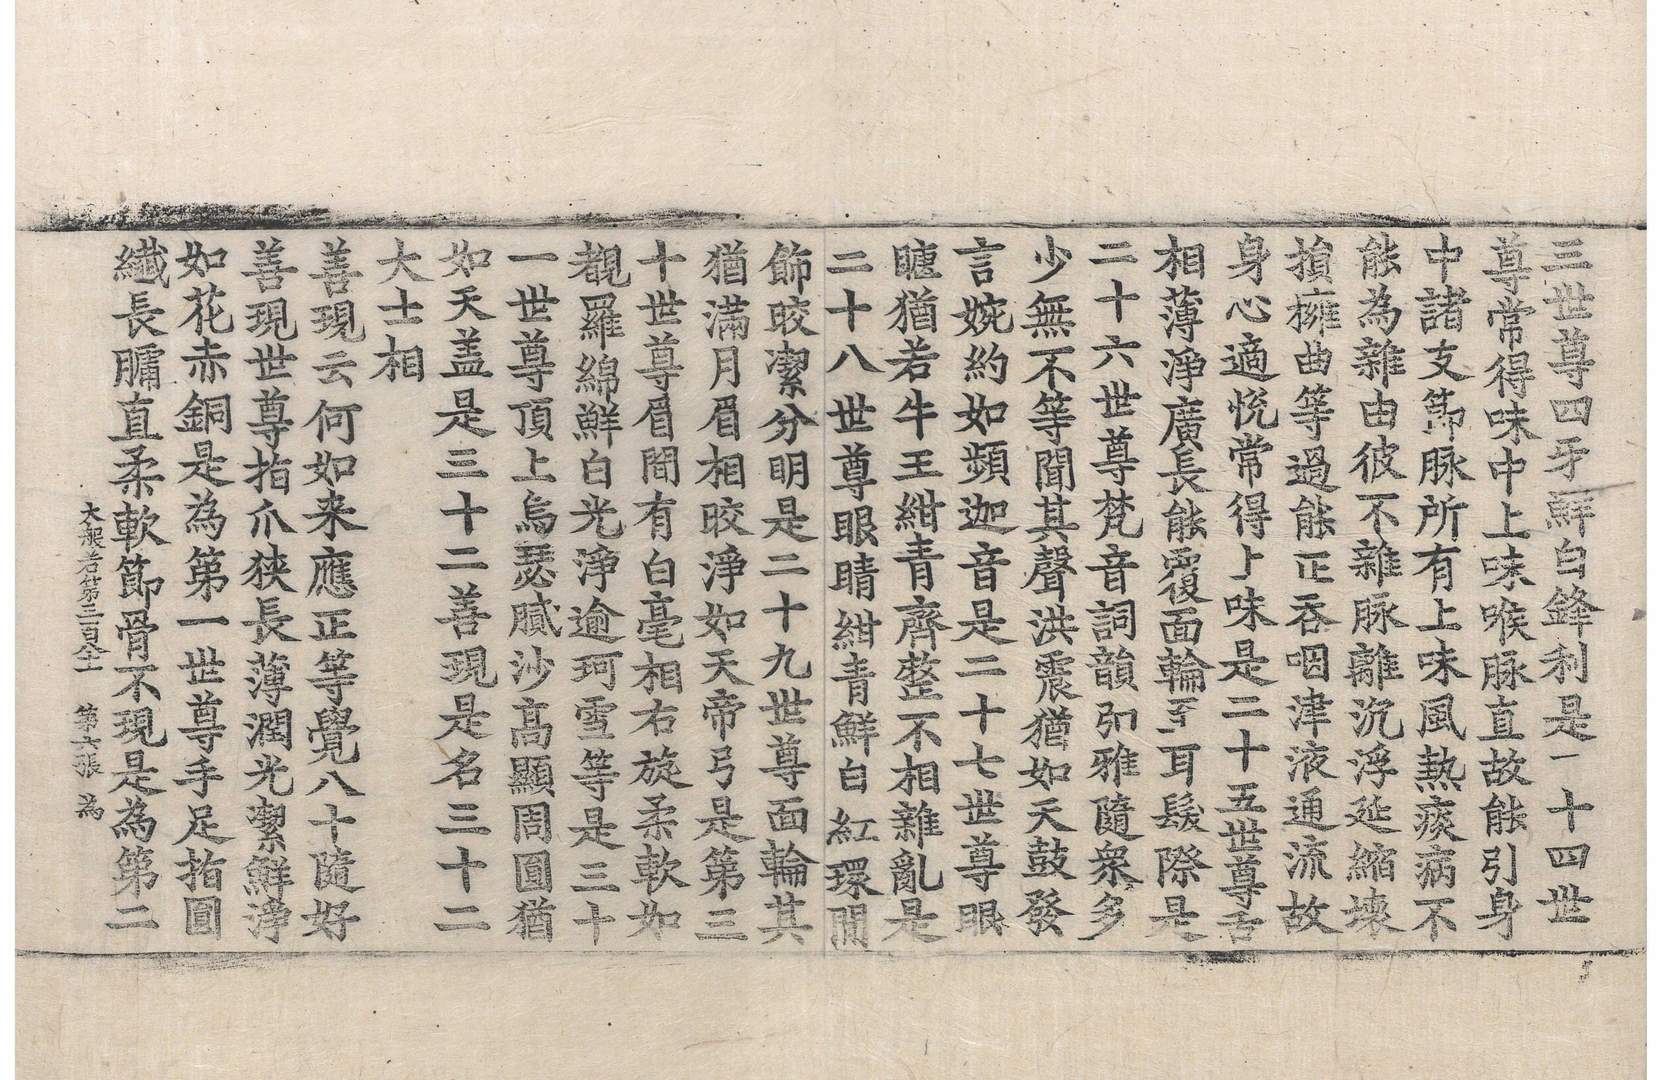 三世尊四牙鮮白鋒利是二十四世
尊常得味中上味喉脉直故能引身
中諸支節脉所有上味風熱痰病不
能為雜由彼不雜脉離沉浮延縮壞
損擁曲等過能正吞咽津液通流故
身心適悅常得上味是二十五世尊舌
相薄淨廣長能覆面輪至耳髮際是
二十六世尊梵音詞韻弘雅隨衆多
少無不等聞其聲洪震猶如天鼓發
言婉約如頻迦音是二十七世尊眼
睫猶若牛王紺青齊整不相雜亂是
二十八世尊眼睛紺青鮮白紅環間
飾皎潔分明是二十九世尊面輪其
猶滿月眉相皎淨如天帝弓是第三
十世尊眉間有白毫相右旋柔軟如
覩羅綿鮮白光淨逾珂雪等是三十
一世尊頂上烏瑟膩沙高顯周圓猶
如天盖是三十二善現是名三十二
大士相
善現云何如来應正等覺八十隨好
善現世尊指爪狹長薄潤光潔鮮淨
如花赤銅是為第一世尊手足指圓
纖長𦟛直柔軟節骨不現是為第二
大般若第三百八十一 第六張 為